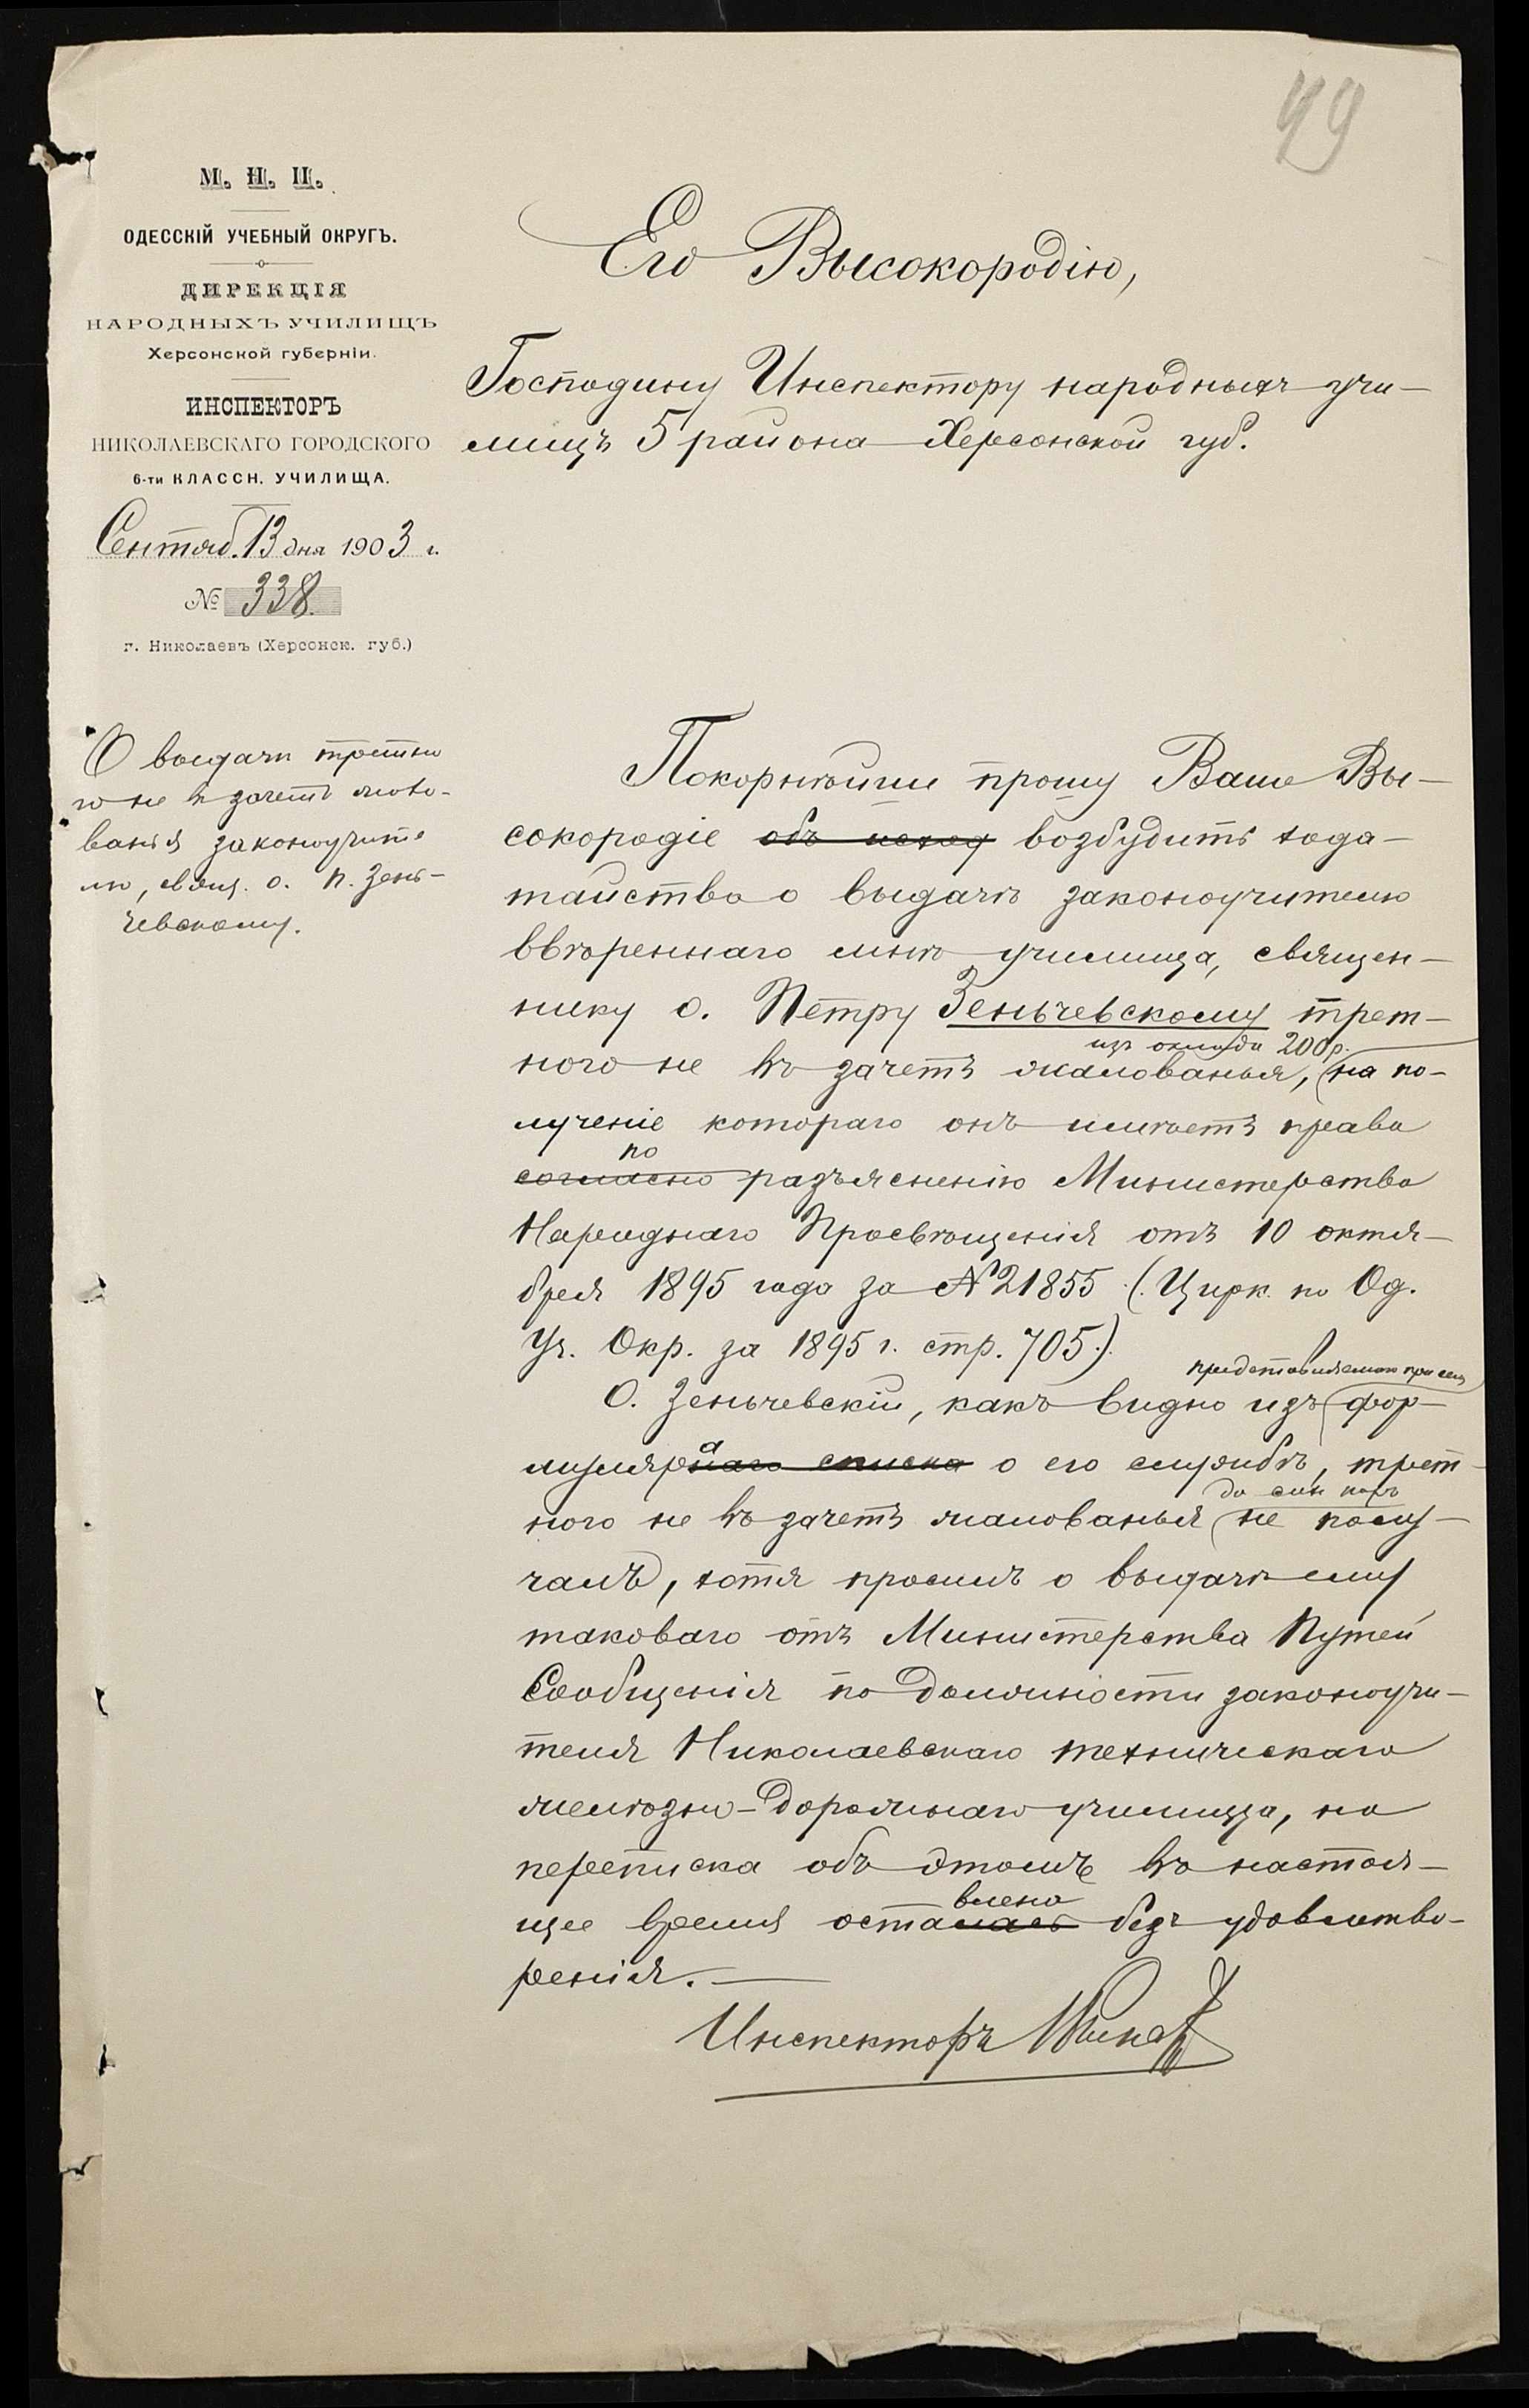 49
М. Н. П.
ОДЕССКІЙ УЧЕБНЫЙ ОКРУГЪ.
ДИРЕКЦІЯ
НАРОДНЫХЪ УЧИЛИЩЪ
Херсонской губерніи.
ИНСПЕКТОРЪ
НИКОЛАЕВСКАГО ГОРОДСКОГО
6-ти КЛАССН. УЧИЛИЩА.
Сентяб. 13 дня 1903 г.
№ 338.
г. Николаевъ (Херсонск. губ.)
О выдачи третно
го не в зачетъ жало-
ванья законоучите
лю, свящ. о. П. Зень-
чевскому.
Его Высокородію,
Господину Инспектору народныхъ учи-
лищъ 5 района Херсонской губ.
Покорнѣйше прошу Ваше Вы-
сокородіе объ исход возбудить хода-
тайство о выдачѣ законоучителю
ввѣреннаго мнѣ училища, священ-
нику о. Петру Зеньчевскому трет-
изъ оклада 200 р.
ного не въ зачетъ жалованья, на по-
лученіе котораго онъ имѣетъ право
по
согласно разъясненію Министерства
Народнаго Просвѣщенія отъ 10 октя-
бря 1895 года за № 21855 (Цирк. по Од.
Уч. Окр. за 1895 г. стр. 705.)
представляемаго при семъ
О. Зеньчевскій, какъ видно изъ фор-
а
мулярнаго списка о его службѣ, трет-
до сихъ поръ
ного не въ зачетъ жалованья не полу-
чалъ, хотя просилъ о выдачѣ ему
таковаго отъ Министерства Путей
Сообщенія по должности законоучи-
теля Николаевскаго техническаго
желѣзно-дорожнаго училища, но
переписка объ этомъ въ настоя-
влена
щее время осталась безъ удовлетво-
ренія.
Инспекторъ